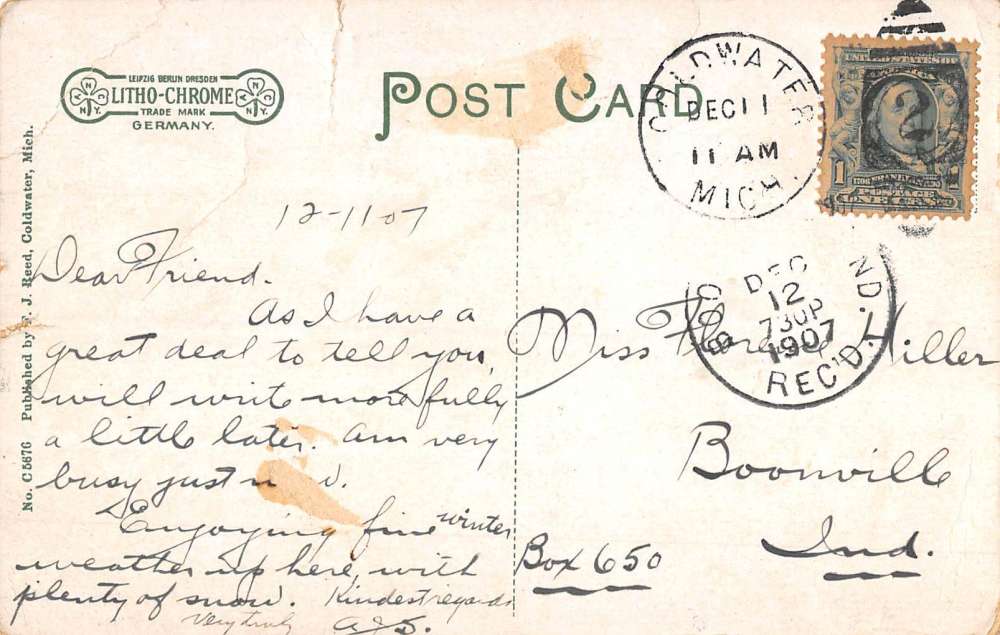 LEIPZIG BERLIN DRESDEN
LITHO-CHROME
TRADE MARK
GERMANY.
POST CARD
COLDWATER
DEC 11
11 AM
MICH.
1
ONE CENT
2
No. C5676 Published by F. J. Reed, Coldwater, Mich.
12-11-07
Dear Friend.
As I have a
great deal to tell you,
will write more fully
a little later. Am very
busy just
Enjoying fine winter
weather up here, with
plenty of snow. Kindest regards
Very truly
DEC
12
730P
1907
REC'D.
IND.
Miss Miller
Boonville
Ind.
Box 650